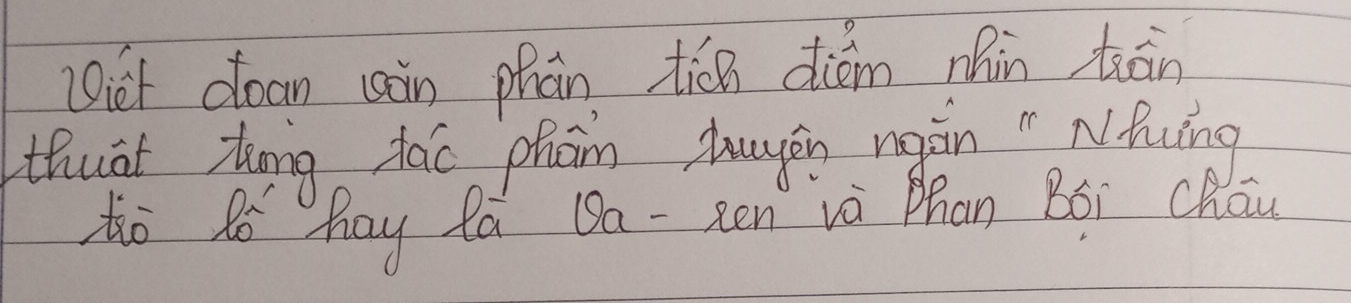 Viết đoạn văn phân tích điểm nhìn trần
thuật trong tác phẩm truyện ngắn "Những
trò lố hay là Va-ren và Phan Bội Châu